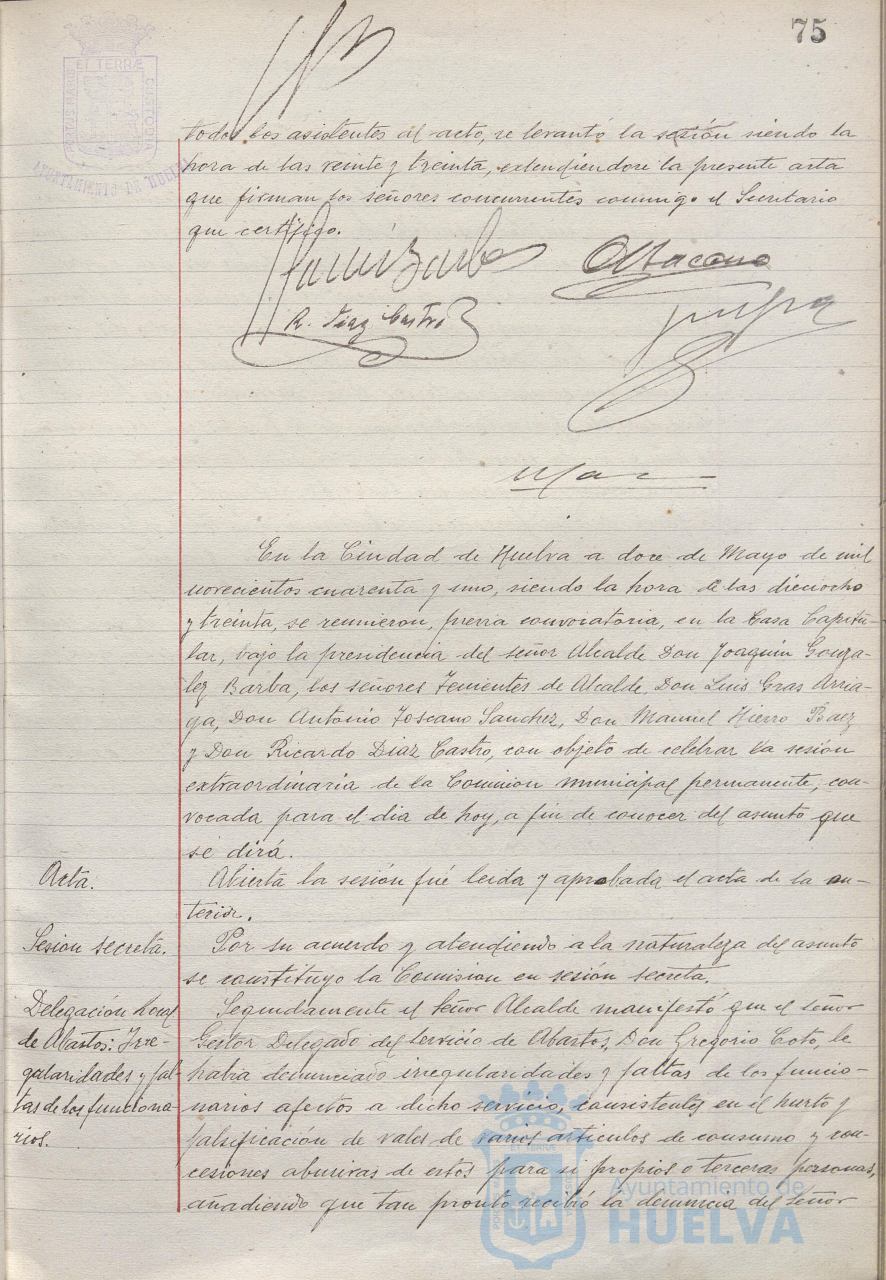 75
ET TERRÆ
PORTUS MARIS
CUSTODIA
AYUNTAMIENTO DE HUELVA
todos los asistentes al acto, se levantó la sesión siendo la
hora de las veinte y treinta, extendiendose la presente acta
que firman los señores concurrentes conmigo el Secretario
que certifico.
R. Diaz Castro
En la Ciudad de Huelva a doce de Mayo de mil
novecientos cuarenta y uno, siendo la hora de las dieciocho
y treinta, se reunieron, previa convocatoria, en la Casa Capitu-
lar, bajo la presidencia del señor Alcalde Don Joaquin Gonza-
lez Barba, los señores Tenientes de Alcalde, Don Luis Gras Arria-
ga, Don Antonio Toscano Sanchez, Don Manuel Hierro Baez
y Don Ricardo Diaz Castro, con objeto de celebrar la sesión
extraordinaria de la Comision municipal permanente, con-
vocada para el dia de hoy, a fin de conocer del asunto que
se dirá.
Acta.
Abierta la sesión fué leida y aprobada el acta de la an-
terior.
Sesion secreta.
Por su acuerdo y atendiendo a la naturaleza del asunto
se constituyo la Comision en sesión secreta.
Delegación local
de Abastos: Irre-
gularidades y fal-
tas de los funciona-
rios.
Seguidamente el Señor Alcalde manifestó que el señor
Gestor Delegado del Servicio de Abastos, Don Gregorio Coto, le
habia denunciado irregularidades y faltas de los funcio-
narios afectos a dicho servicio, consistentes en el hurto y
falsificación de vales de varios articulos de consumo y con-
cesiones abusivas de estos para si propios o terceras personas,
añadiendo que tan pronto recibió la denuncia del Señor
Ayuntamiento de
HUELVA